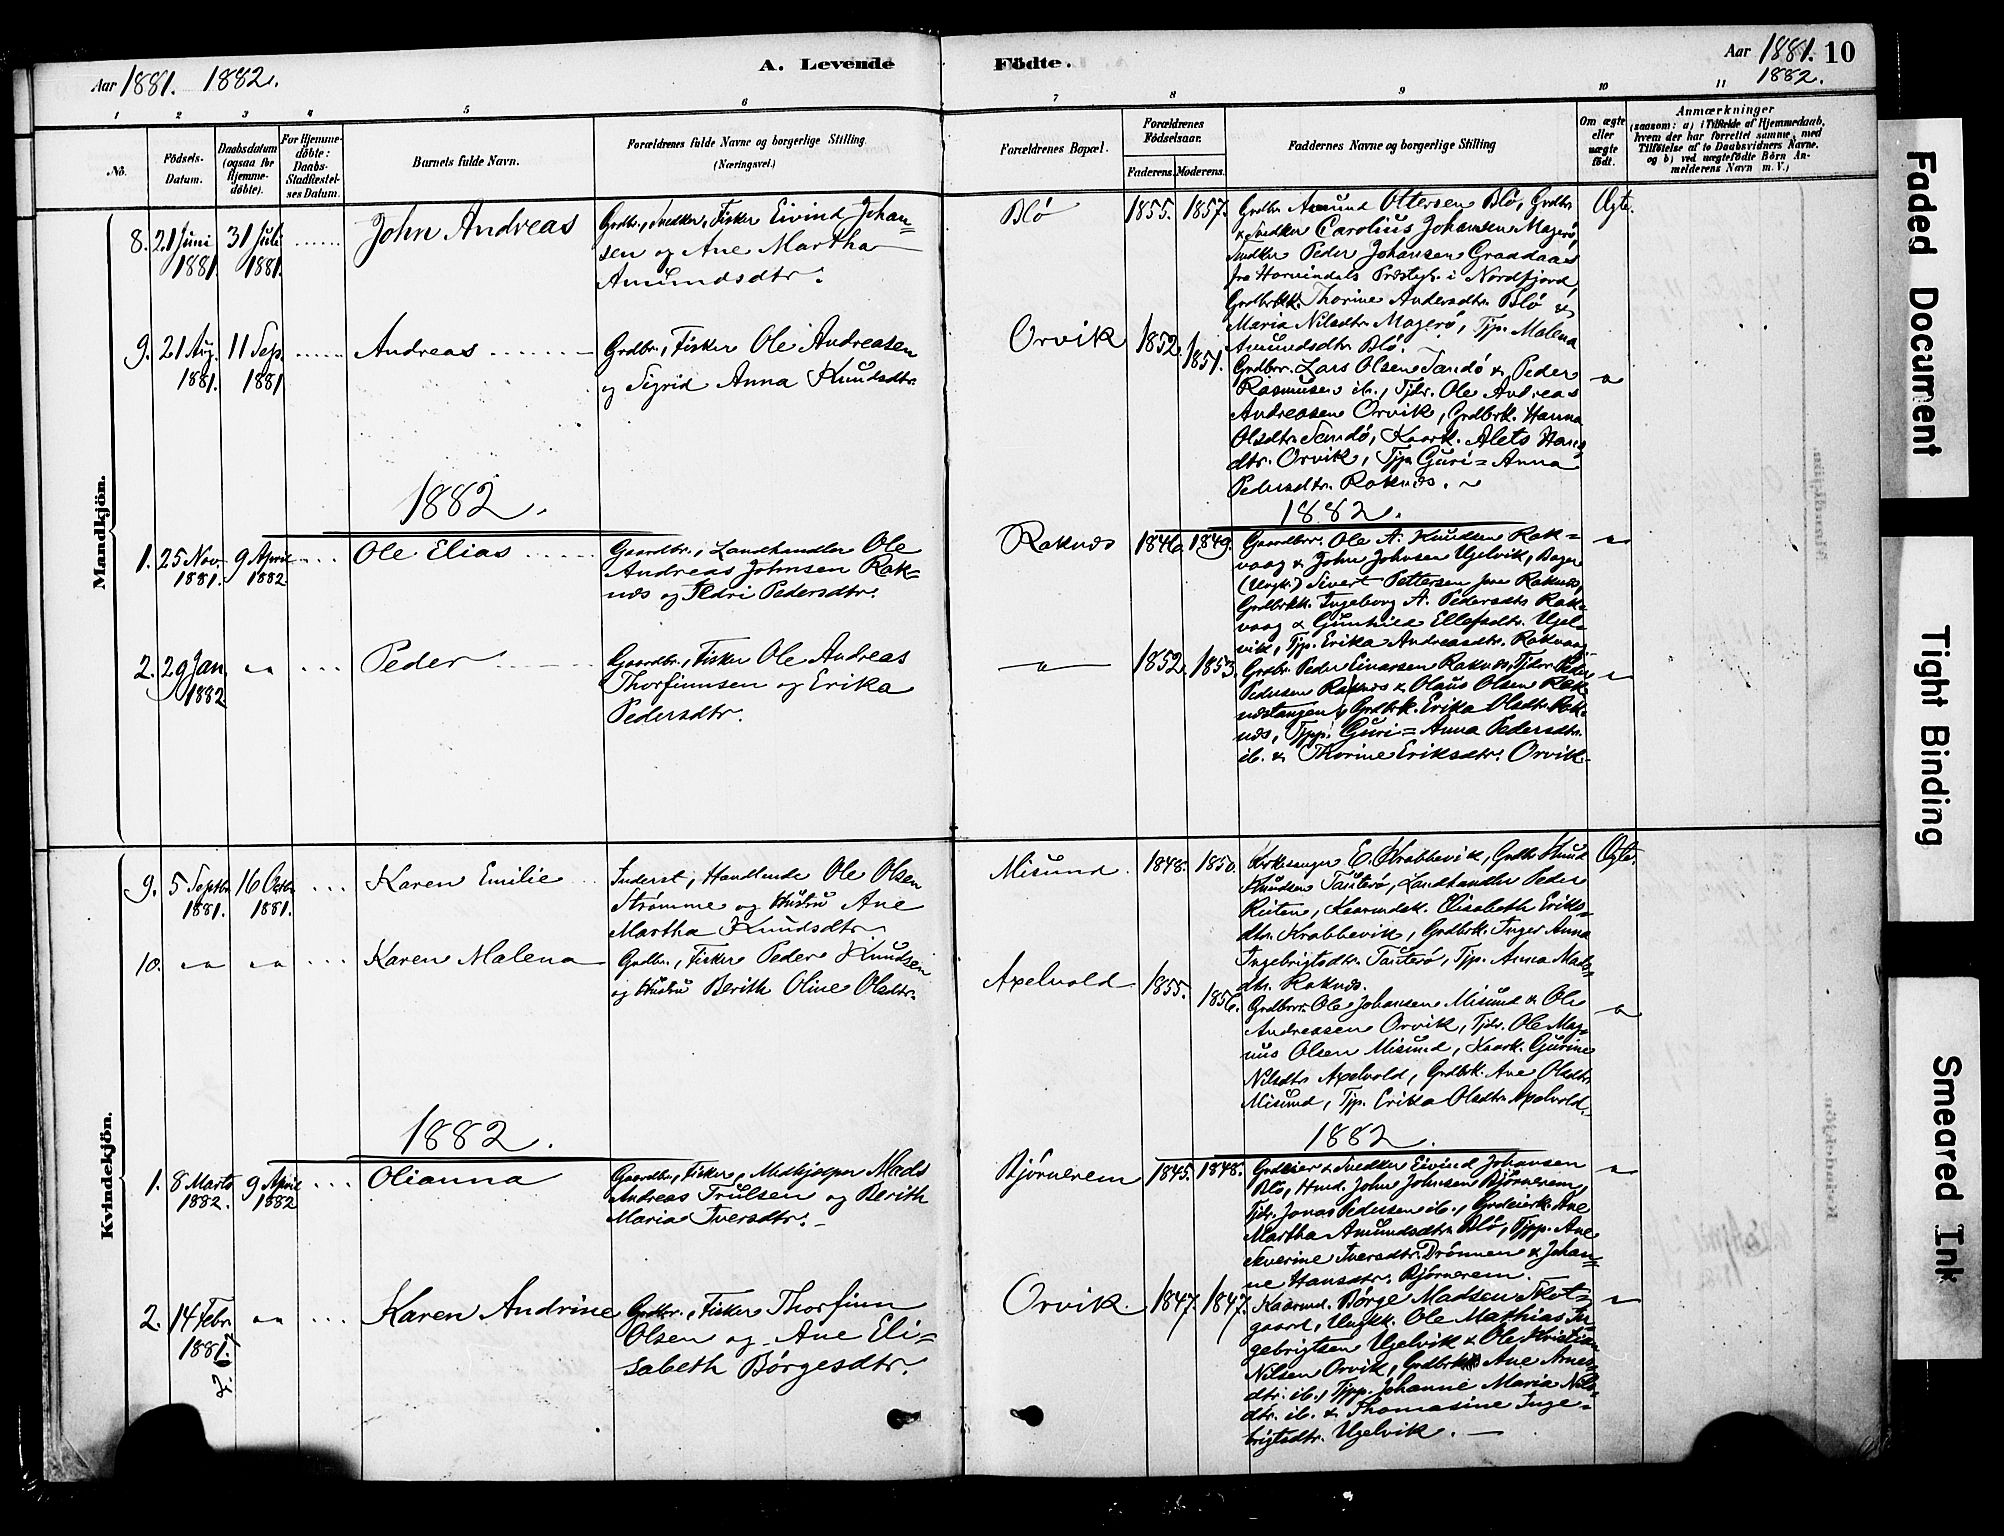 Aar 1881. 1882.
A. Levende Födte.
Aar 1881. 10
1882.
1 2 3 4 5 6 7 8 9 10 11
No.
Födsels-
Datum.
Daabsdatum
(ogsaa for
Hjemme-
döbte).
For Hjemme-
döbte:
Daabs-
Stadfæstel-
ses Datum.
Barnets fulde Navn.
Forældrenes fulde Navne og borgerlige Stilling
(Næringsvei.)
Forældrenes Bopæl.
Forældrenes
Födselsaar.
Faderens. Moderens.
Faddernes Navne og borgerlige Stilling
Om ægte
eller
uægte
födt.
Anmærkninger
(saasom: a) i Tilfælde af Hjemmedaab,
hvem der har forrettet samme, med
Tilföielse af to Daabsvidners Navne.
og b) ved uægtefödte Börn An-
melderens Navn m. V.)
Mandkjön.
8. 21 Juni
1881.
31 Juli
1881.
John Andreas
Grdbr., Snedker, Fisker Eivind Johan-
sen og Ane Martha
Amundsdtr.
Blö 1855. 1857.
Grdbr. Amund Ottersen Blö, Grdbr.
& Snedker Carolius Johansen Magerö,
Snedker Peder Johansen Graadaas
fra Hornindals Præstegj. i Nordfjord,
Grdbrkk. Thorine Andersdtr. Blö &
Maria Nilsdtr. Magerö, Tjp. Malena
Amundsdtr. Blö.
Ægte.
9. 21 Aug.
1881.
11 Sep.
1881
Andreas
Grdbr., Fisker Ole Andreasen
og Sigrid Anna Knudsdtr.
Orvik 1852. 1851.
Grdbrr. Lars Olsen Sandö & Peder
Rasmusen ib., Tjdr. Ole Andreas
Andreasen Orvik, Grdbrk. Hanna
Olsdtr. Sandö, Kaark. Alets Hans
dtr. Orvik, Tjp. Guri=Anna
Pedersdtr. Raknæs.
1882.
1882.
1. 25 Nov.
1881.
9 April
1882
Ole Elias
Gaardbr., Landhandler Ole
Andreas Johnsen Rak-
næs og Pedersdtr.
Raknæs 1846. 1849.
Gaardbrr. Ole A. Knudsen Rak=
vaag & John Johnsen Ugelvik, Bager
(Ungk.) Sivert Pettersen Raknæs,
Grdbrkk. Ingeborg A. Pedersdtr. Rak-
vaag & Gunhild Ellefsdtr. Ugel-
vik, Tjp. Erika Andreasdtr. Rakvaag.
2. 29 Jan.
1882
Peder
Gaardbr., Fisker Ole Andreas
Thorfinnsen og Erika
Pedersdtr.
1852. 1853.
Grdbr. Peder Einarsen Raknæs, Tjdr. Peder
Pedersen Raknæs & Olaus Olsen Rak-
næstangen, Grdbrk. Erika Olsdtr. Rak-
næs, Tjpp. Guri=Anna Pedersdtr.
ib. & Thorine Eriksdtr. Orvik.
Kvindekjön.
9. 5 Septbr.
1881.
16 Octbr.
1881.
Karen Emilie
Inderst, Handlende Ole Olsen
Strømme og Hustru Ane
Martha Knudsdtr.
Misund. 1848. 1850.
Kirkesanger E. Krabbevik, Grdbr. Knud
Knudsen Tauterö, Landhandler Peder
Riiten, Kaarmdsk. Elisabeth Eriks-
dtr. Krabbevik, Grdbrk. Inger Anna
Ingebrigtsdtr. Tauterö, Tjp. Anna Mads
dtr. Raknæs.
Ægte.
10.
Karen Malena
Grdbr., Fisker Peder Knudsen
og Hustru Berith Oline Olsdtr.
Axelvold 1855. 1856.
Grdbrr. Ole Johansen Misund & Ole
Andreasen Orvik, Tjdr. Ole Mag-
nus Olsen Misund, Kaark. Gurine
Nilsdtr. Axelvold, Grdbrk. Ane Olsdtr.
Misund, Tjp. Erika Olsdtr. Axelvold.
1882.
1882.
1. 8 Marts
1882.
9 April
1882
Olianna
Gaardbr., Fisker, Medhjælper Mads
Andreas Trulsen og Berith
Maria Iversdtr.
Bjørnerem 1845. 1848.
Grdeier & Snedker Eivind Johansen
Blö, Hmd. John Johnsen Bjørnerem,
Tjdr. Jonas Pedersen ib., Grdeierk. Ane
Martha Amundsdtr. Blö, Tjpp. Ane
Severine Iversdtr. Drönnen & Johan-
ne Hansdtr. Bjørnerem.
2. 14 Febr.
1881.
Karen Andrine
Grdbr., Fisker Thorfinn
Olsen og Ane Eli=
sabeth Børgesdtr.
Orvik. 1847. 1847.
Kaarmd. Børge Madsen Skot=
gaard, Ungkk. Ole Mathias In-
gebrigtsen Ugelvik & Ole Kristian
Nilsen Orvik, Grdbrk. Ane Arnes
dtr. ib., Tjpp. Johanne Maria Nils-
dtr. ib. & Thomasine Inge-
brigtsdtr. Ugelvik.
Faded Document
Tight Binding
Smeared Ink